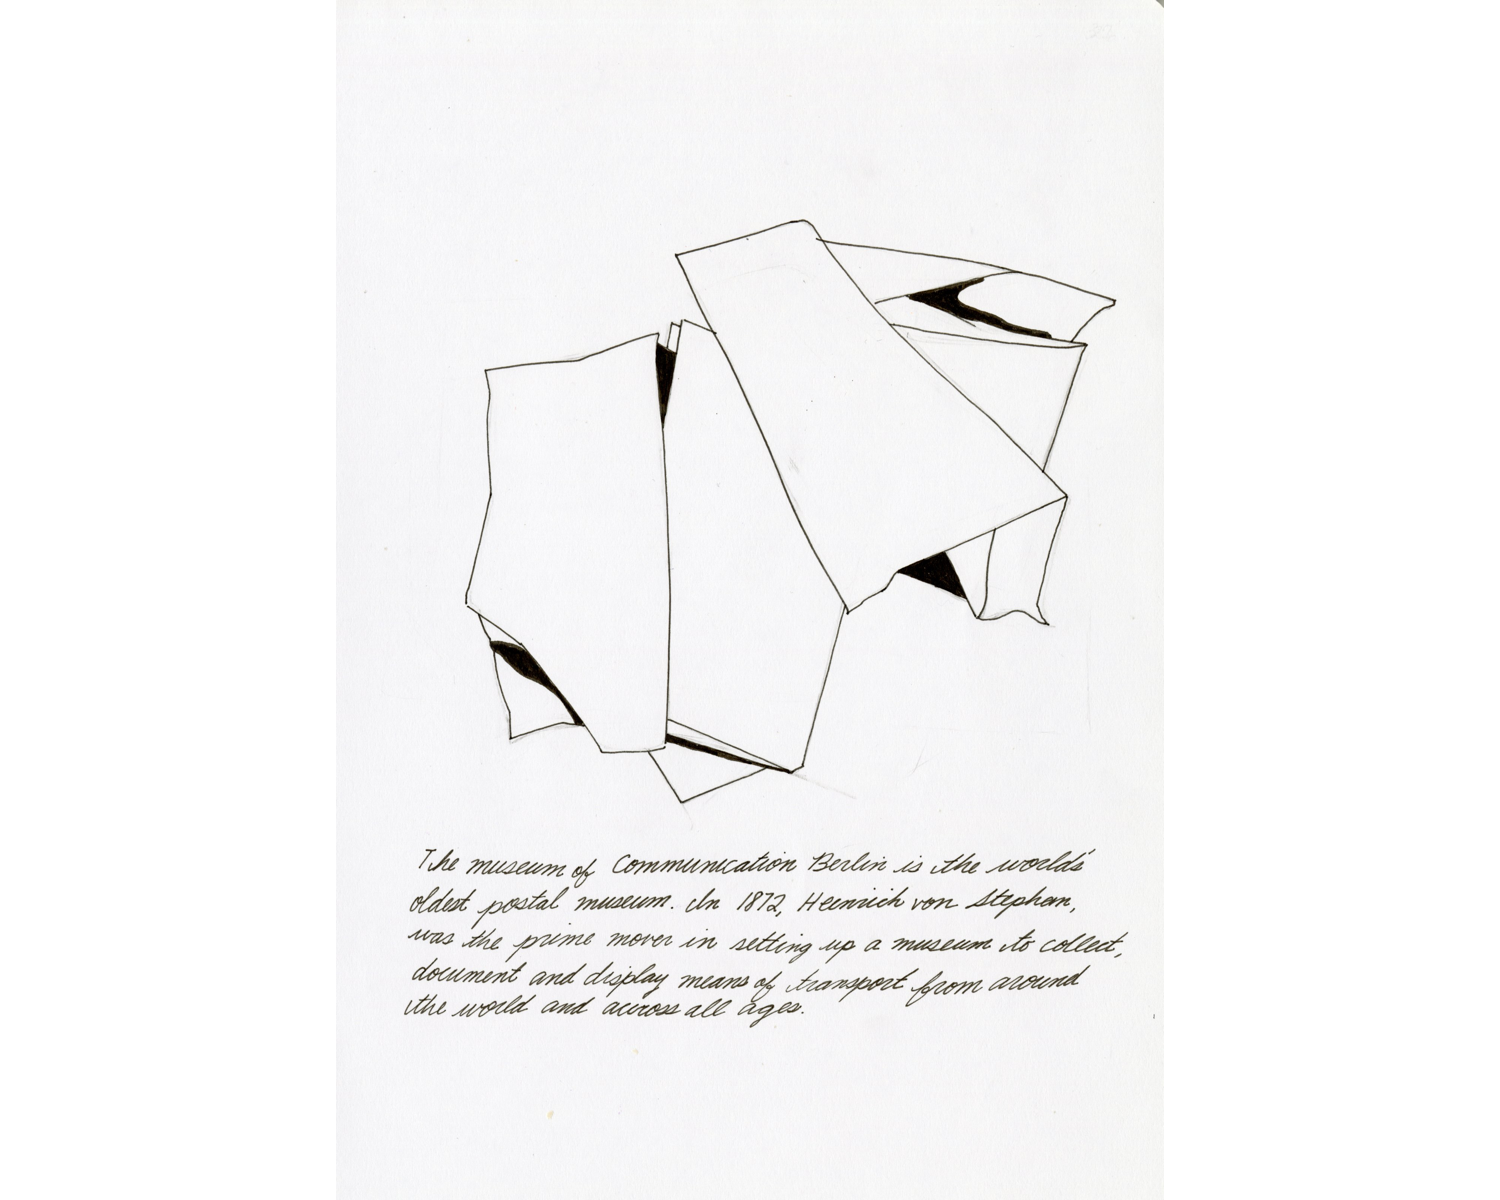 The museum of Communication Berlin is the worlds'
oldest postal museum. In 1872, Heinrich von Stephan,
was the prime mover in setting up a museum to collect,
document and display means of transport from around
the world and accross all ages.